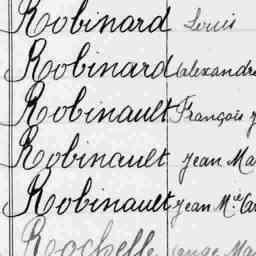 Robinard Louis
Robinard Alexandre
Robinault François
Robinault Jean Ma
Robinault Jean M.
Rochelle Ma